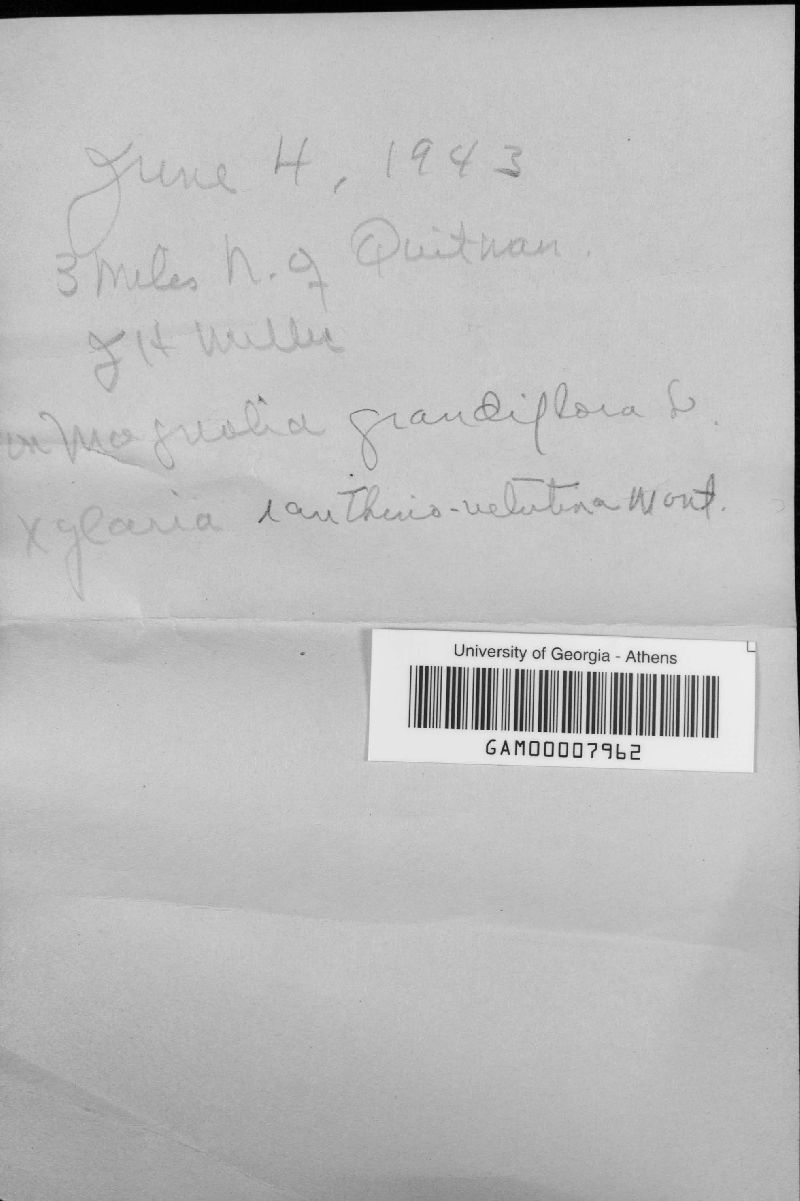 June 4, 1943
3 miles N. of Quitman.
J H Miller
on Magnolia grandiflora L.
Xylaria ianthino-velutina Mont.
University of Georgia - Athens
GAM00007962